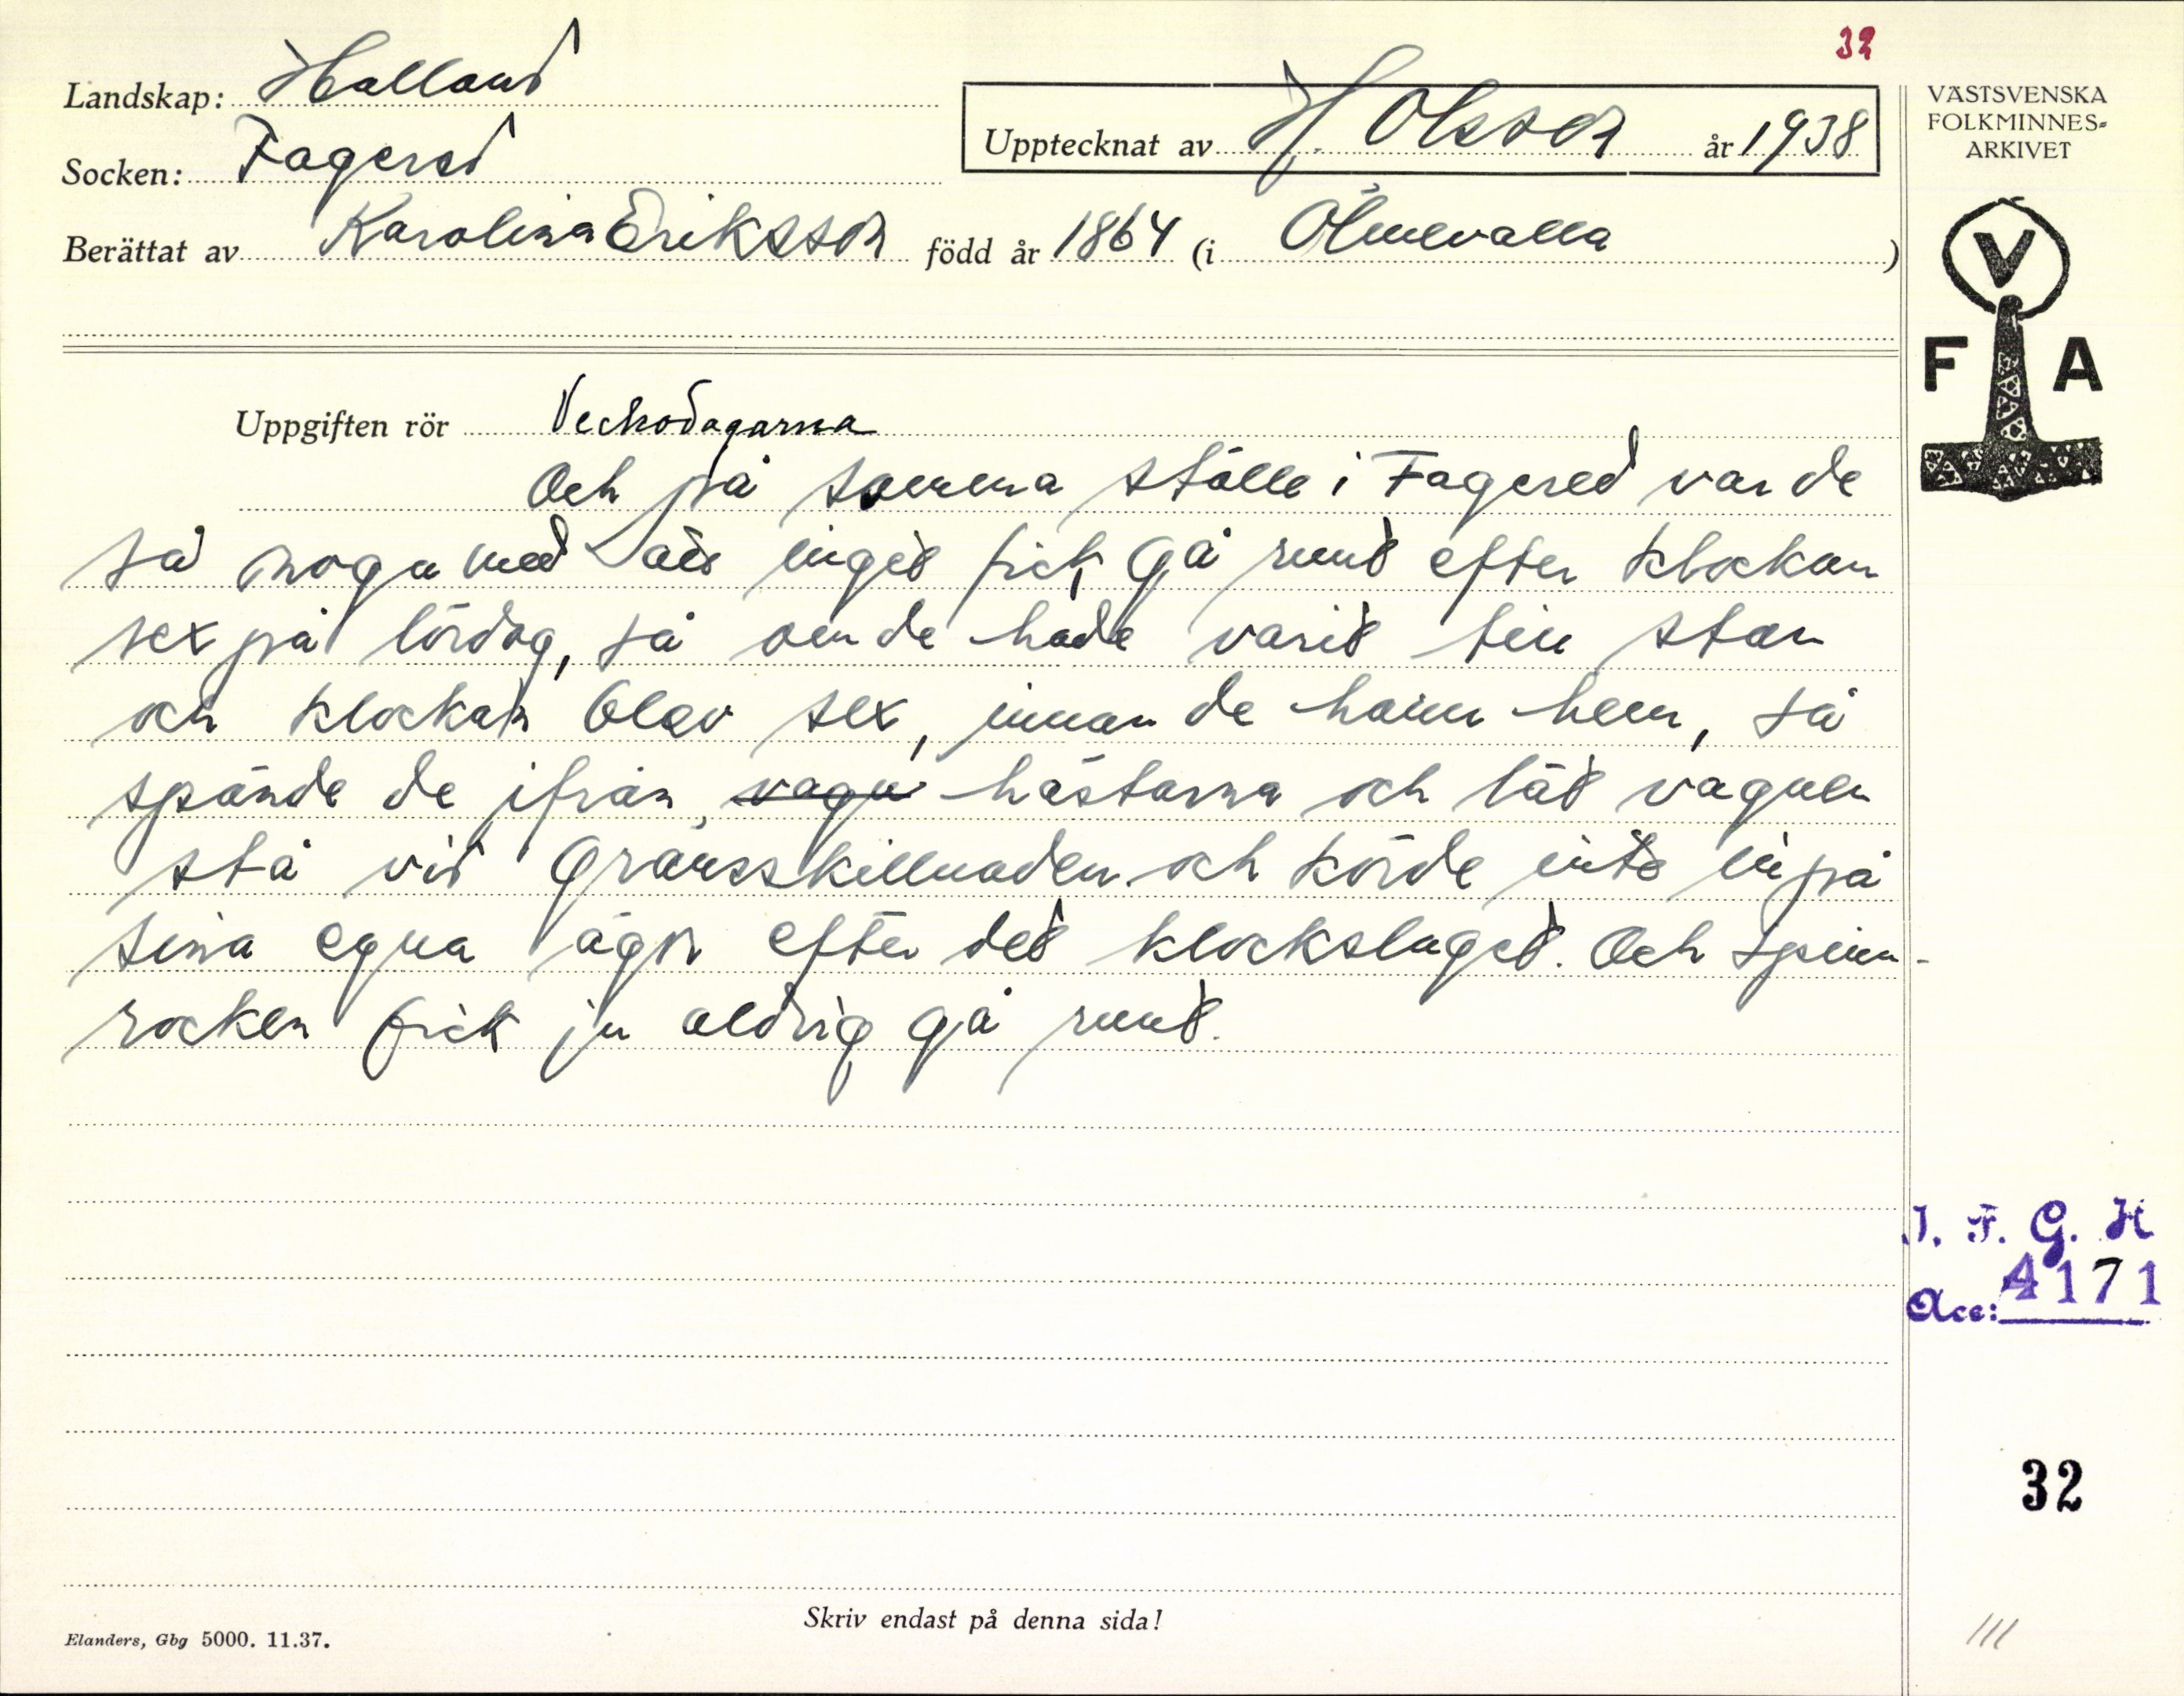 32
Landskap: Halland
Upptecknat av H. Olsson år 1938
Socken: Fagered
Berättat av Karolina Eriksson född år 1864 (i Ölmevalla )
VÄSTSVENSKA
FOLKMINNES-
ARKIVET
V
F A
Uppgiften rör Veckodagarna
Och på samma ställe i Fagered var de
så noga med att inget fick gå runt efter klockan
sex på lördag, så om de hade varit till stan
och klockan blev sex, innan de hann hem, så
spände de ifrån vagn hästarna och lät vagnen
stå vid gränsskillnaden och körde inte in på
sina egna ägor efter det klockslaget. Och spinn-
rocken fick ju aldrig gå runt.
I. F. G. H
Acc: 4171
32
Skriv endast på denna sida!
Elanders, Gbg 5000. 11.37.
///